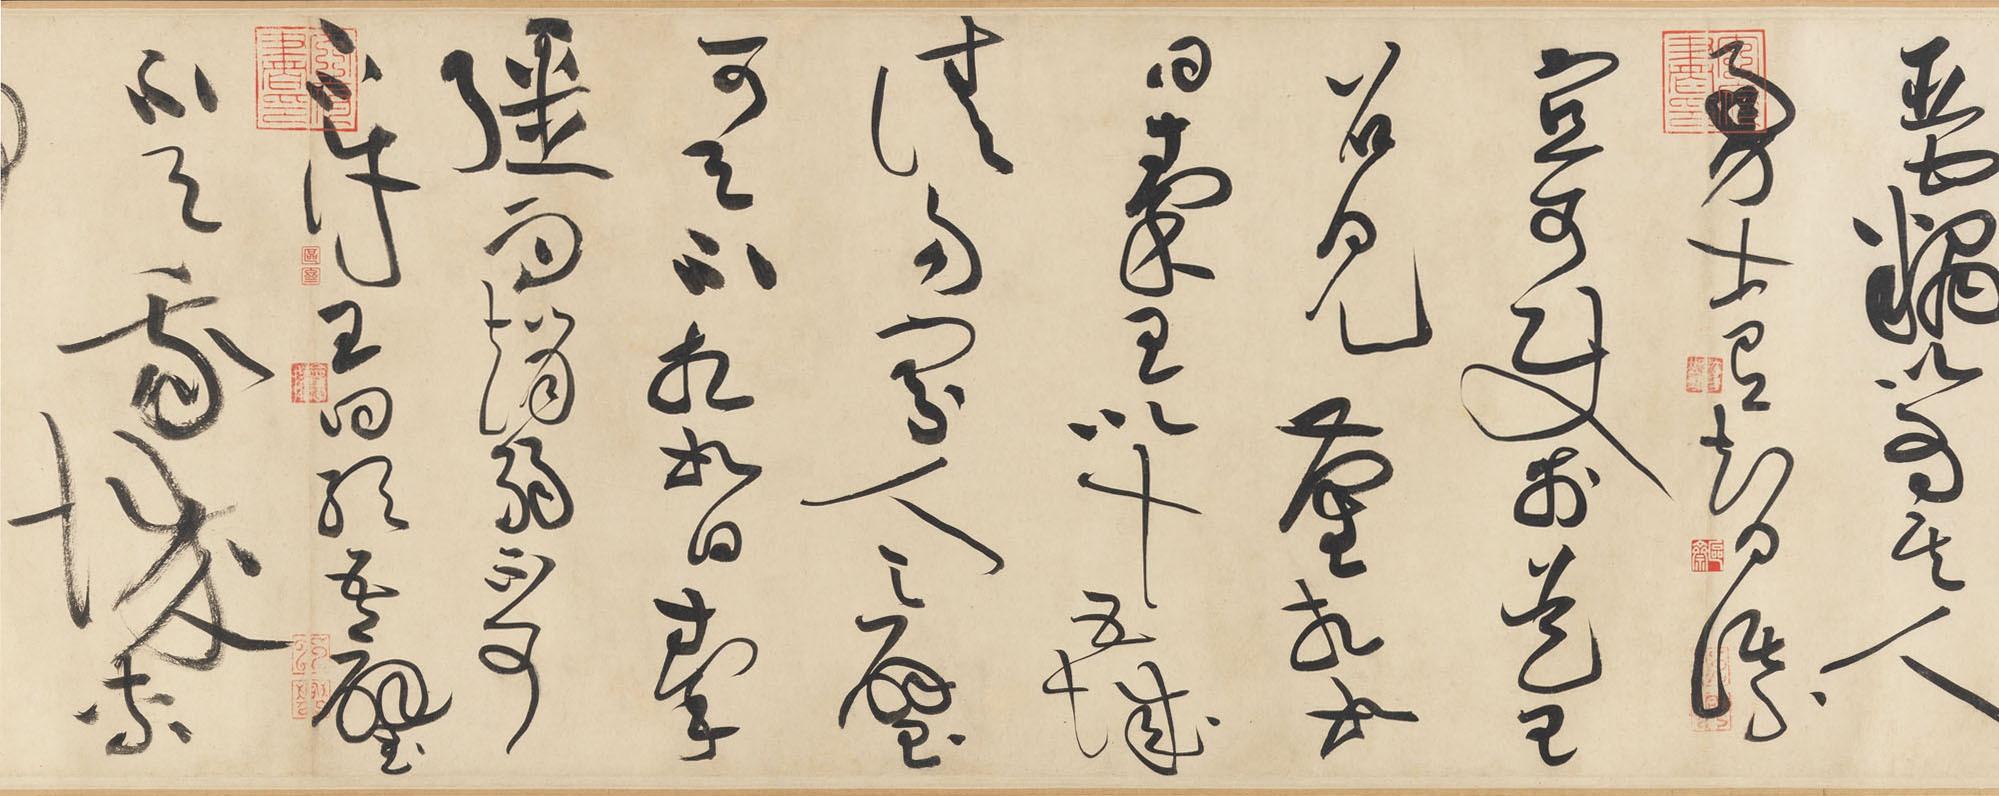 臣竊以為其人
勇士有智謀
宜可使於是王
召見藺相如
曰秦王以十五城
請易寡人之璧
可予不相如曰秦
彊而趙弱不可
不許王曰取吾璧
不予我城奈